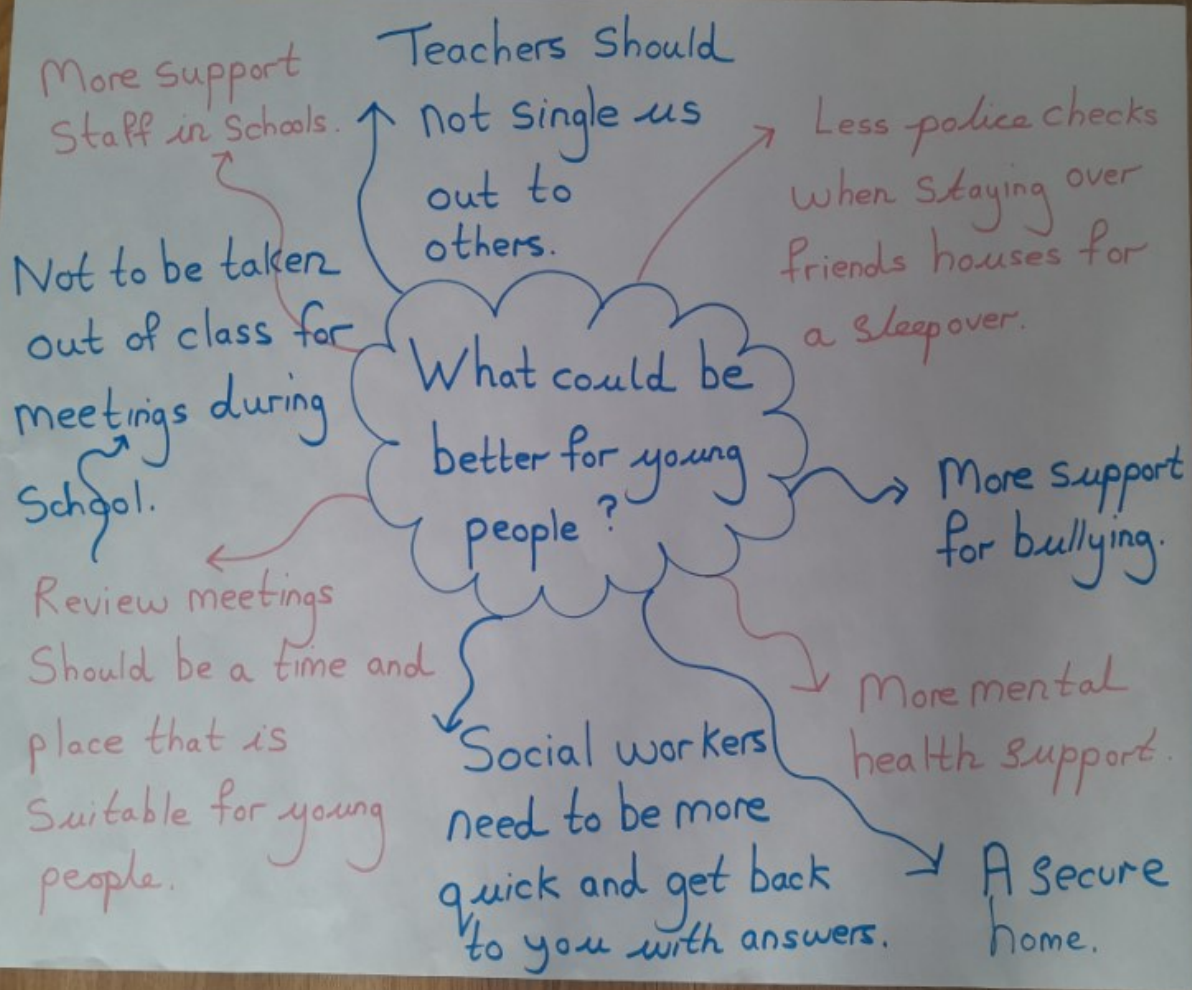 More support
Staff in Schools.
Teachers Should
not single us
out to
others.
Less police checks
when staying over
friends houses for
a sleepover.
Not to be taken
out of class for
meetings during
School.
What could be
better for young
people?
More support
for bullying.
Review meetings
Should be a time and
place that is
Suitable for young
people.
Social workers
need to be more
quick and get back
to you with answers.
More mental
health support.
A secure
home.